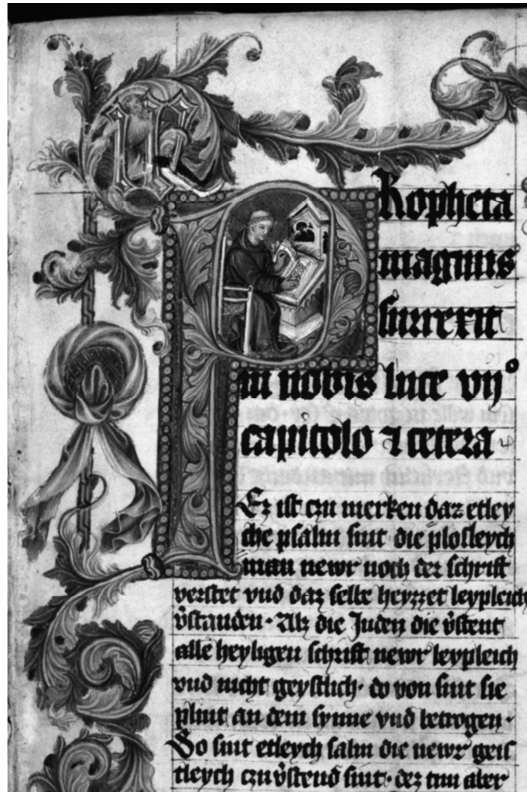 PRopheta
magnus
surrexit
in nobis luce vijº
capitolo ⁊ cetera
Ez ist czu merken daz etley
che psalm sint die plosleych
man newr noch der schrift
verstet vnd daz selbe heyzzet leypleich
v̄standen · Alz die Juden die v̄stent
alle heyligen schrift newr leypleich
vnd nicht geystlich · do von sint sie
plint an dem synne vnd betrogen ·
So sint etleych salm die newr geis
tleych czu v̄stend sint · der tun aber